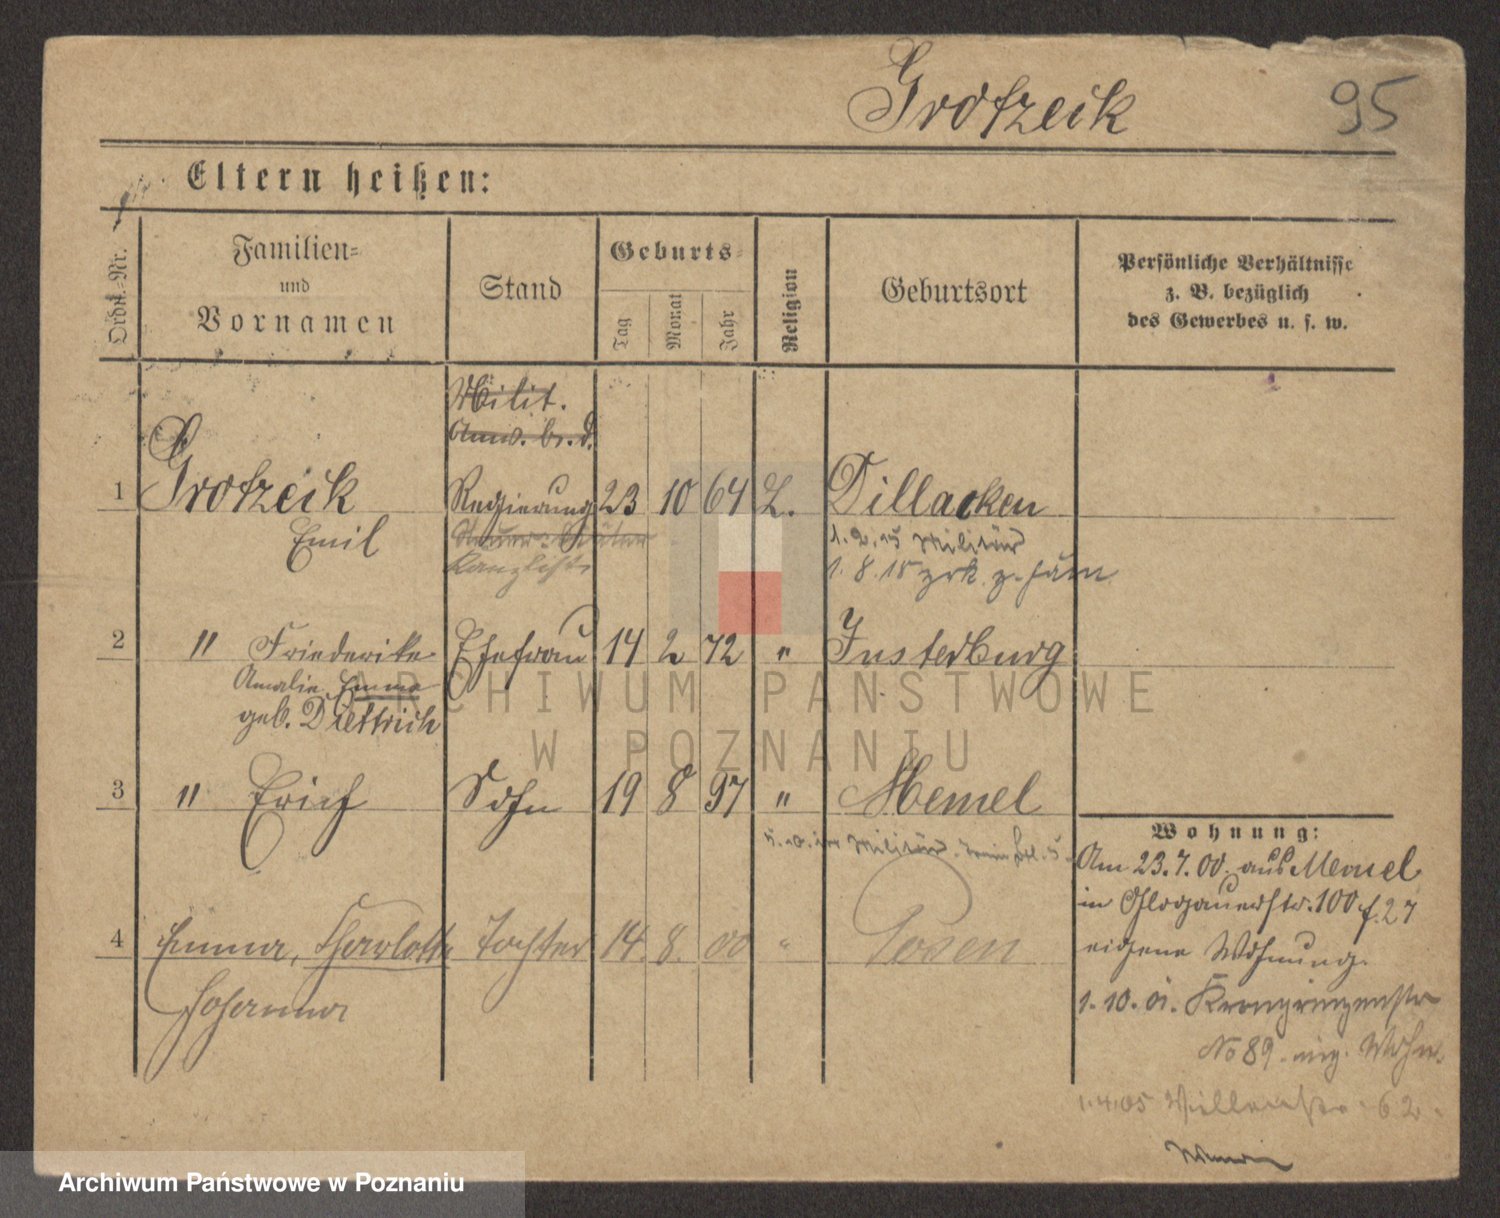 Grotzeik 95
Eltern heißen:
Ordn.-Nr.
Familien-
und
Vornamen
Stand
Geburts-
Tag
Monat
Jahr
Religion
Geburtsort
Persönliche Verhältnisse
z. B. bezüglich
des Gewerbes u. s. w.
Milit.
Anw. b. d.
1 Grotzeik Regierung 23 10 64 L. Dillacken
Emil
1. 2. 15 Militär
Kanzlist
1. 8. 18 zrk. z.
2 " Friederike Ehefrau 14 2 72 " Insterburg
Amalie Emma
geb. Diettrich
ARCHIWUM PAŃSTWOWE
W POZNANIU
3 " Erich Sohn 19 8 97 " Memel
Militär
4 Emma, Charlotte Tochter 14. 8. 00 " Posen
Johanna
Wohnung:
Am 23.7.00. aus Memel
in Glogauerstr. 100 f. 27
eigene Wohnung.
1. 10. 01. Kronprinzenstr
No 89. eig. Wohn.
1.4.05 Villenstr. 62.
Archiwum Państwowe w Poznaniu